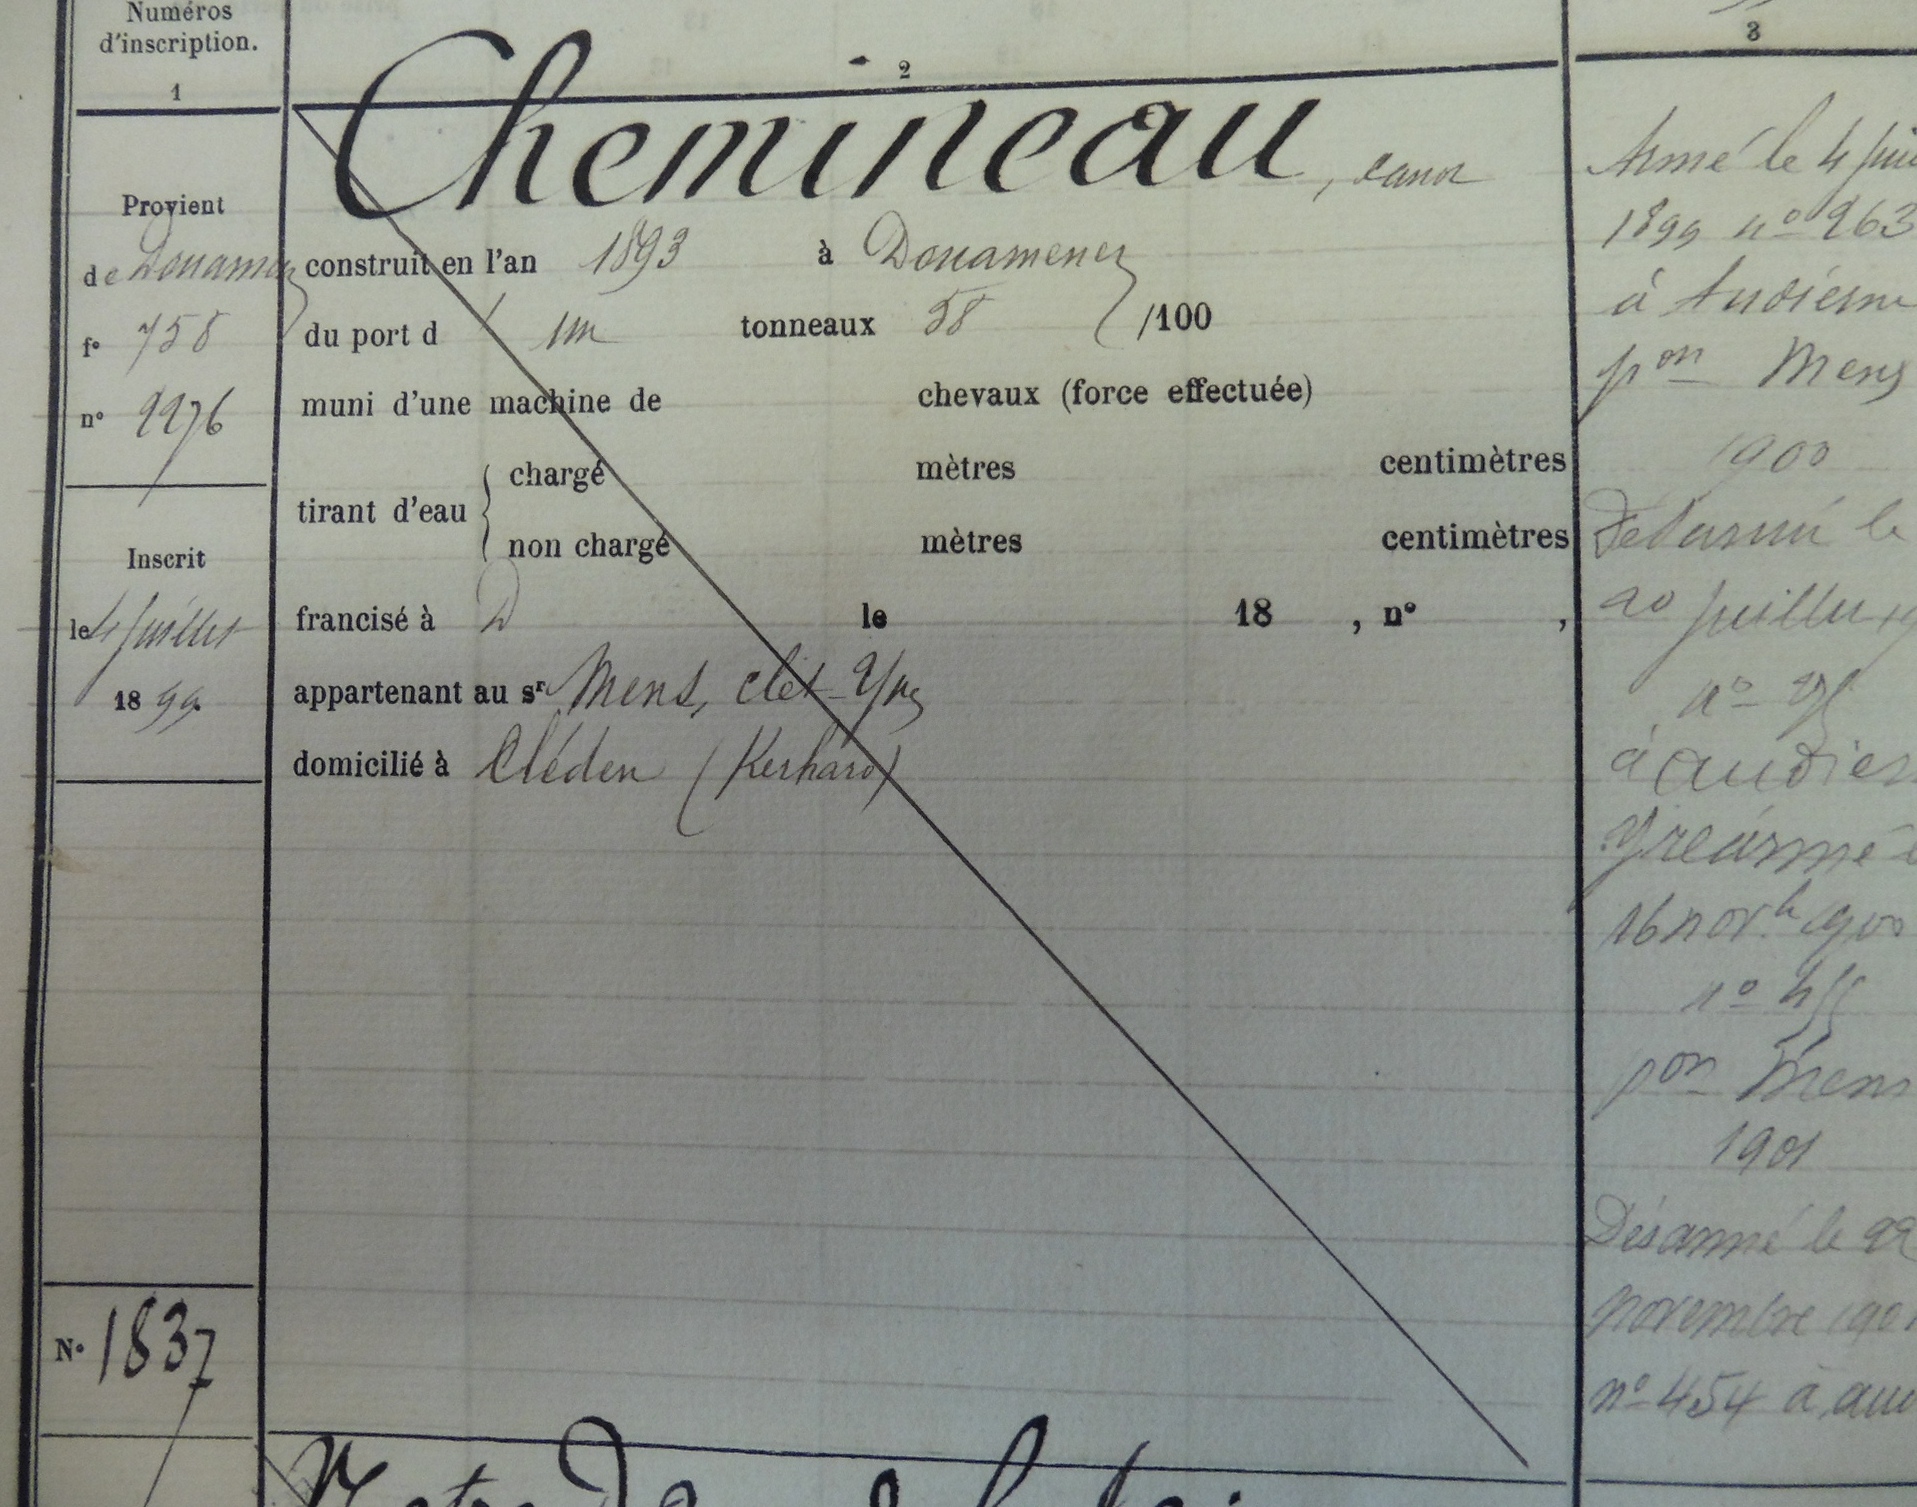 Numéros
d'inscription.
1
2
3
Chemineau, canot
Provient
de Douarnenez
f° 758
n° 2276
Inscrit
le 4 Juillet
1899
N° 1837
construit en l'an 1893 à Douarnenez
du port d' un tonneaux 58 /100
muni d'une machine de chevaux (force effectuée)
tirant d'eau { chargé mètres centimètres
non chargé mètres centimètres
francisé à D le 18 , n° ,
appartenant au sr Mens, Clet-Yves
domicilié à Cléden (Kerharo)
Armé le 4 Jui
1899 n° 263
à Audierne
pon Mens
1900
Désarmé le
20 Juillet 19
n°
à Audier
Réarmé
16 novb 1900
n° 455
pon Mens
1901
Désarmé le 22
novembre 1901
n° 454 à Aud
Notre Dame